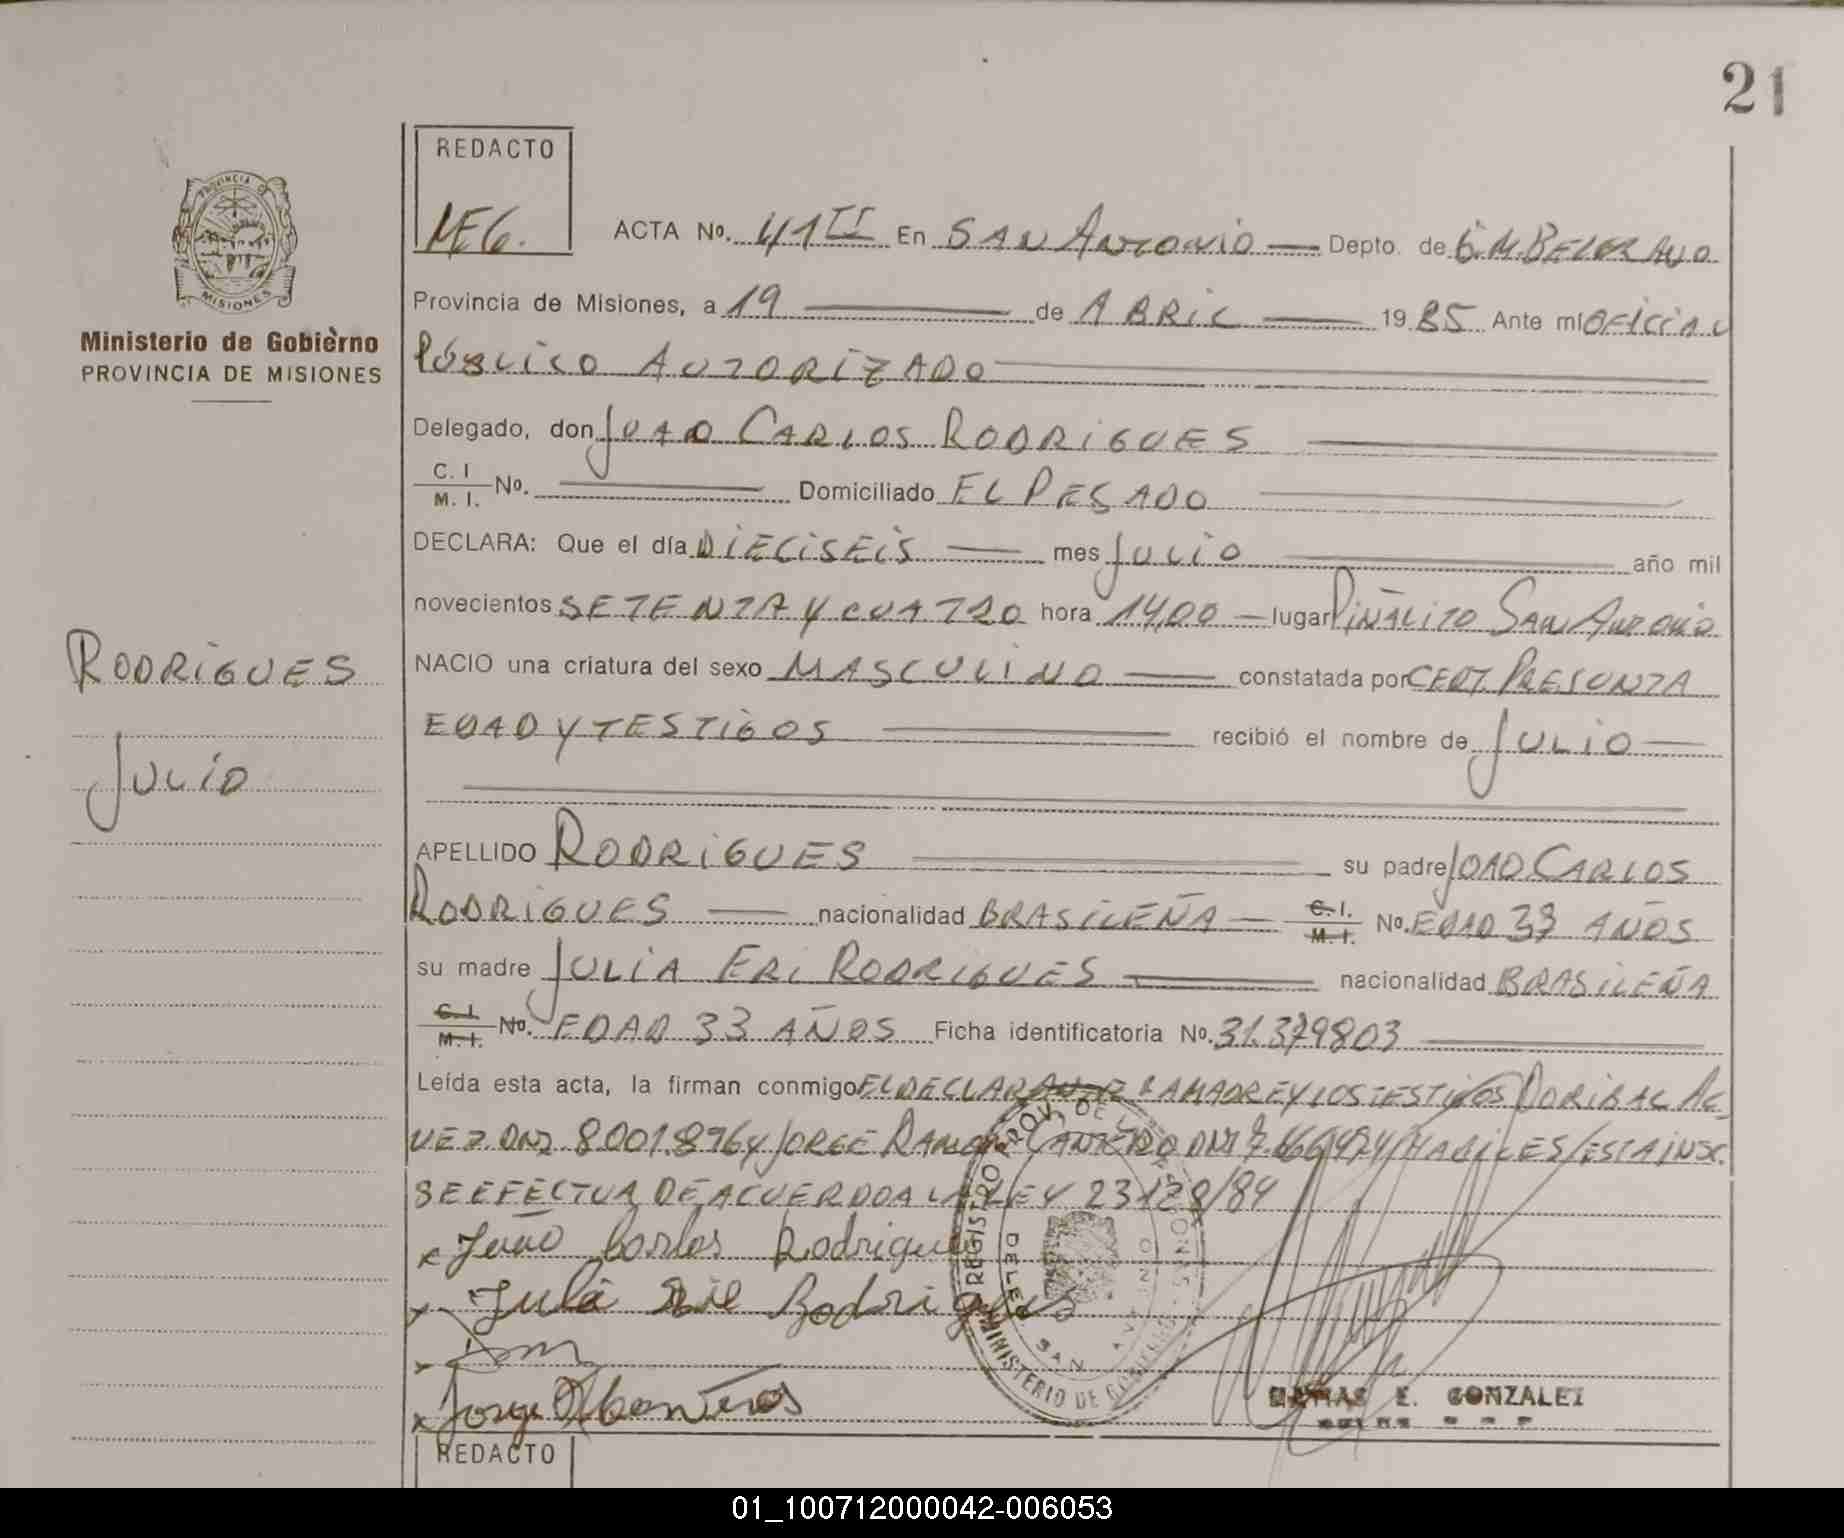 21
REDACTO
MEG.
PROVINCIA DE
MISIONES
Ministerio de Gobierno
PROVINCIA DE MISIONES
ACTA No. 41 II En SAN ANTONIO Depto. de G. M. BELGRANO
Provincia de Misiones, a 19 de ABRIL 19 85 Ante mí OFICIAL
PÚBLICO AUTORIZADO
Delegado, don JOAO CARLOS RODRIGUES
C. I
M. I. No. Domiciliado EL PESADO
DECLARA: Que el día DIECISEIS mes JULIO año mil
novecientos SETENTA Y CUATRO hora 14,00 lugar PIÑALITO SAN ANTONIO
RODRIGUES
NACIO una criatura del sexo MASCULINO constatada por CERT. PRESUNTA
EDAD Y TESTIGOS recibió el nombre de JULIO
JULIO
APELLIDO RODRIGUES su padre JOAO CARLOS
RODRIGUES nacionalidad BRASILEÑA C. I. M. I. No. EDAD 33 AÑOS
su madre JULIA ERI RODRIGUES nacionalidad BRASILEÑA
C. I. M. I. No. EDAD 33 AÑOS Ficha identificatoria No. 31.379803
Leída esta acta, la firman conmigo EL DECLARANTE LA MADRE Y LOS TESTIGOS DORIBAL AL
VEZ DNI 8.001.896 Y JORGE RAMON CANTERO DNI HABILES/ESTA INSC.
SE EFECTUA DE ACUERDO A LA LEY 23128/84
x João Carlos Rodrigues
x Rodrigues
x
x Jorge
REGISTRO PROV. DE
MINISTERIO DE GOBIERNO
SAN
E. GONZALEZ
REDACTO
01_100712000042-006053